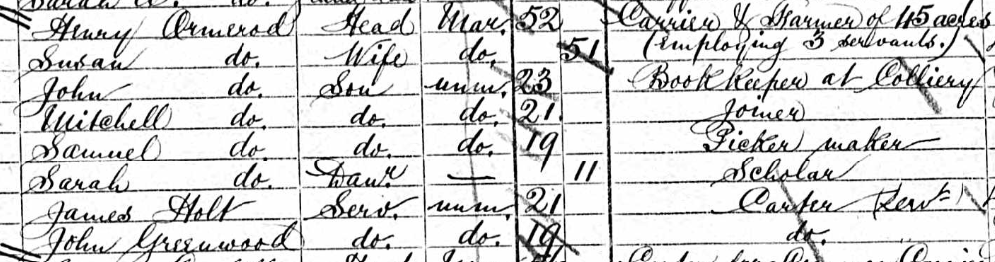 Sarah do.
Henry Ormerod Head Mar. 52 Carrier & Farmer of 45 acres
(employing 3 servants.)
Susan do. Wife do. 51
John do. Son unm. 23 Book keeper at Colliery
Mitchell do. do. do. 21 Joiner
Samuel do. do. do. 19 Picker maker
Sarah do. Daur. — 11 Scholar
James Holt Serv. unm. 21 Carter (Servt)
John Greenwood do. do. 19 do.